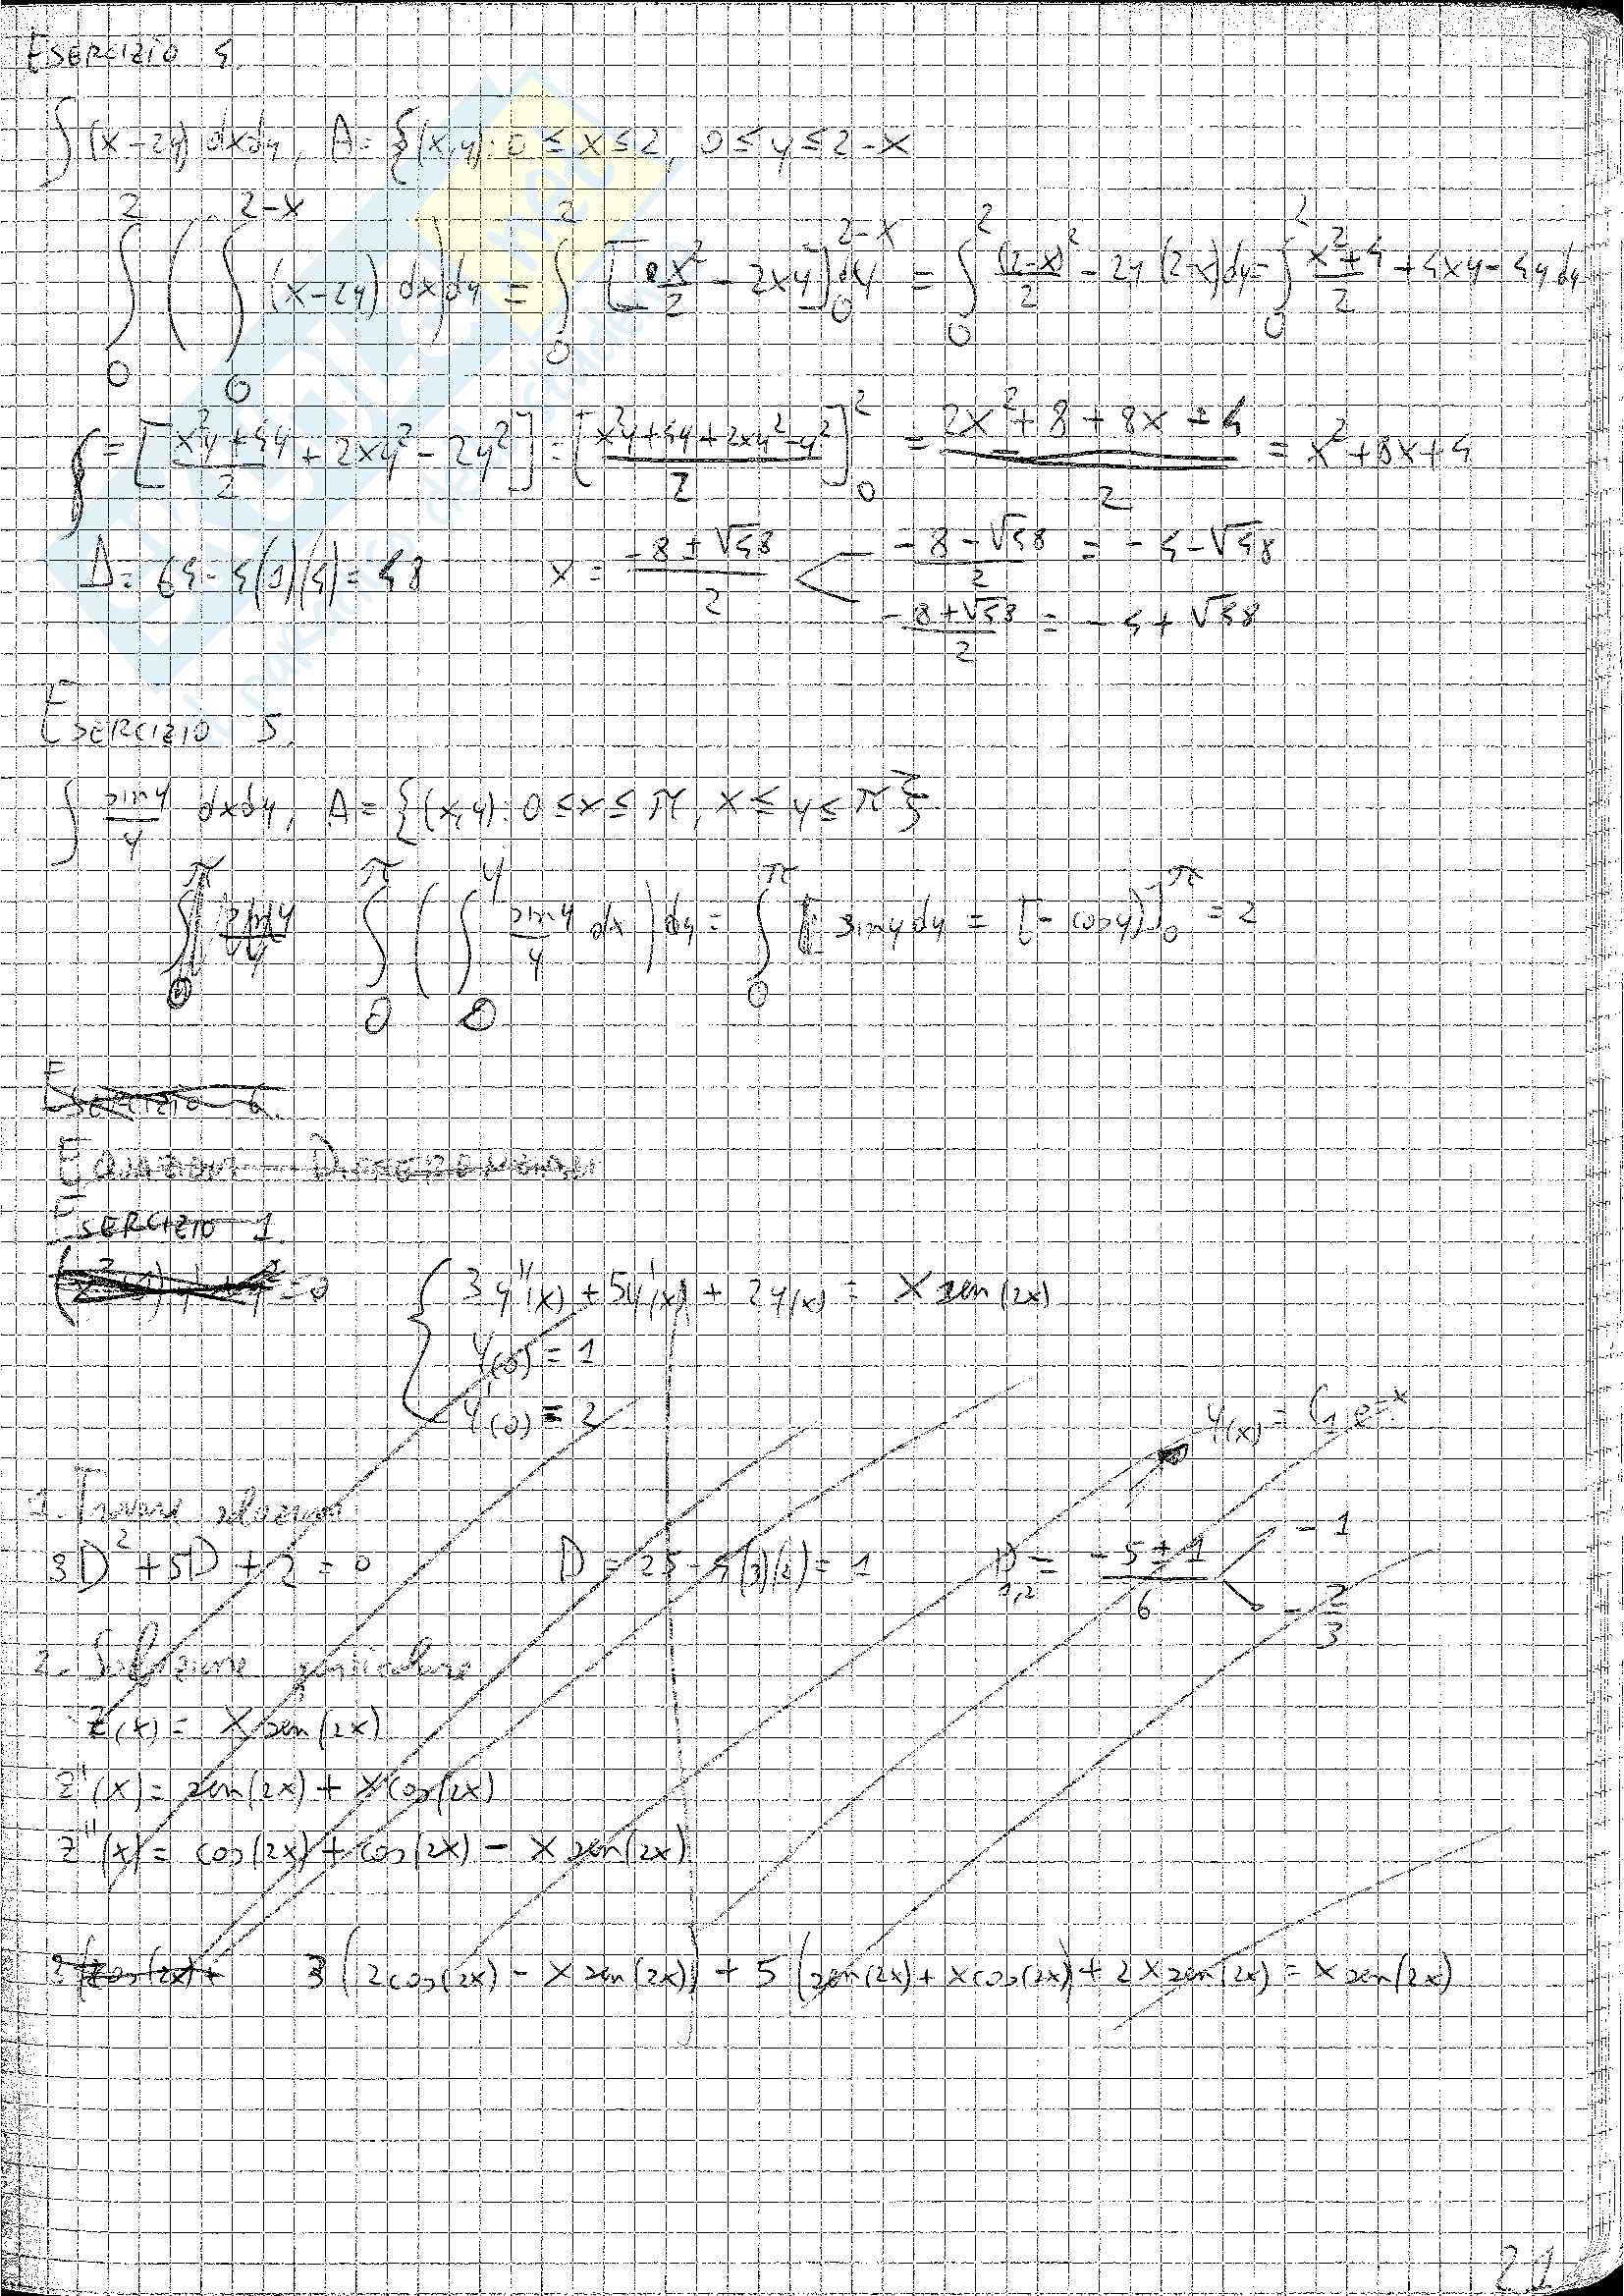 ESERCIZIO 4.
∫ (x-2y) dxdy, A = {(x,y): 0 ≤ x ≤ 2, 0 ≤ y ≤ 2-x
∫₀² ( ∫₀^{2-x} (x-2y) dx ) dy = ∫₀² [ x²/2 - 2xy ]₀^{2-x} dy = ∫₀² (2-x)²/2 - 2y(2-x) dy = ∫₀² (x²+4)/2 + 4xy - 4y dy
= [ (x²y+4y)/2 + 2xy² - 2y² ] = [ (x²y+4y+2xy²-y²)/2 ]₀² = (2x²+8+8x-4)/2 = x²+8x+4
Δ = 64-4(1)(4) = 48 x = (-8±√48)/2 (-8-√48)/2 = -4-√48
(-8+√48)/2 = -4+√48
ESERCIZIO 5.
∫ (sin y)/y dxdy, A = {(x,y): 0 ≤ x ≤ π, x ≤ y ≤ π}
∫₀^π ( ∫₀^y (sin y)/y dx ) dy = ∫₀^π sin y dy = [-cos y]₀^π = 2
ESERCIZIO 6.
EQUAZIONI DIFFERENZIALI
ESERCIZIO 1.
= 0 { 3y''(x) + 5y'(x) + 2y(x) = x sen(2x)
y(0) = 1
y'(0) = 2
y(x) = C₁ e^{-x}
1. Trovare soluzioni
3D² + 5D + 2 = 0 D = 25-4(3)(2) = 1 D₁,₂ = (-5±1)/6 -1
-2/3
2. Soluzione particolare
z(x) = x sen(2x)
z'(x) = sen(2x) + x cos(2x)
z''(x) = cos(2x) + cos(2x) - x sen(2x)
3(cos(2x)+ 3(2cos(2x) - x sen(2x)) + 5(sen(2x) + x cos(2x)) + 2x sen(2x) = x sen(2x)
21